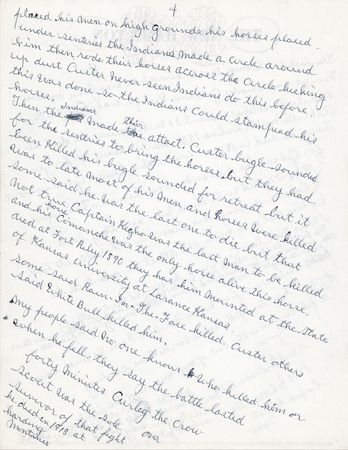 4
placed his men on high grounds his horses placed.
under sentries the Indians made a circle around
him then rode their horses accross the circle kicking
up dust Custer never seen Indians do this before,
this was done so the Indians could stampead his
horses,
Then the Indians made their attact, Custer bugle sounded
for the sentries to bring the horses but they had
been killed his bugle sounded for retreat but it
was to late most of his men and horses were killed
some said he was the last one to die but that
not true Captain Keogho was the last man to be killed
and his Comanche was the only horse alive this horse
died at Fort Riley 1890 they had him mounted at the State
of Kansas University at Larance Kansas
some said Rain-In-The-Face killed Custer others
said White Bull killed him,
my people said no one knows who killed him or
when he fell, they say the battle lasted
forty minutes Curley the Crow
scout was the sole
survivor of that fight over
he died in 1913 at
harding
Montana